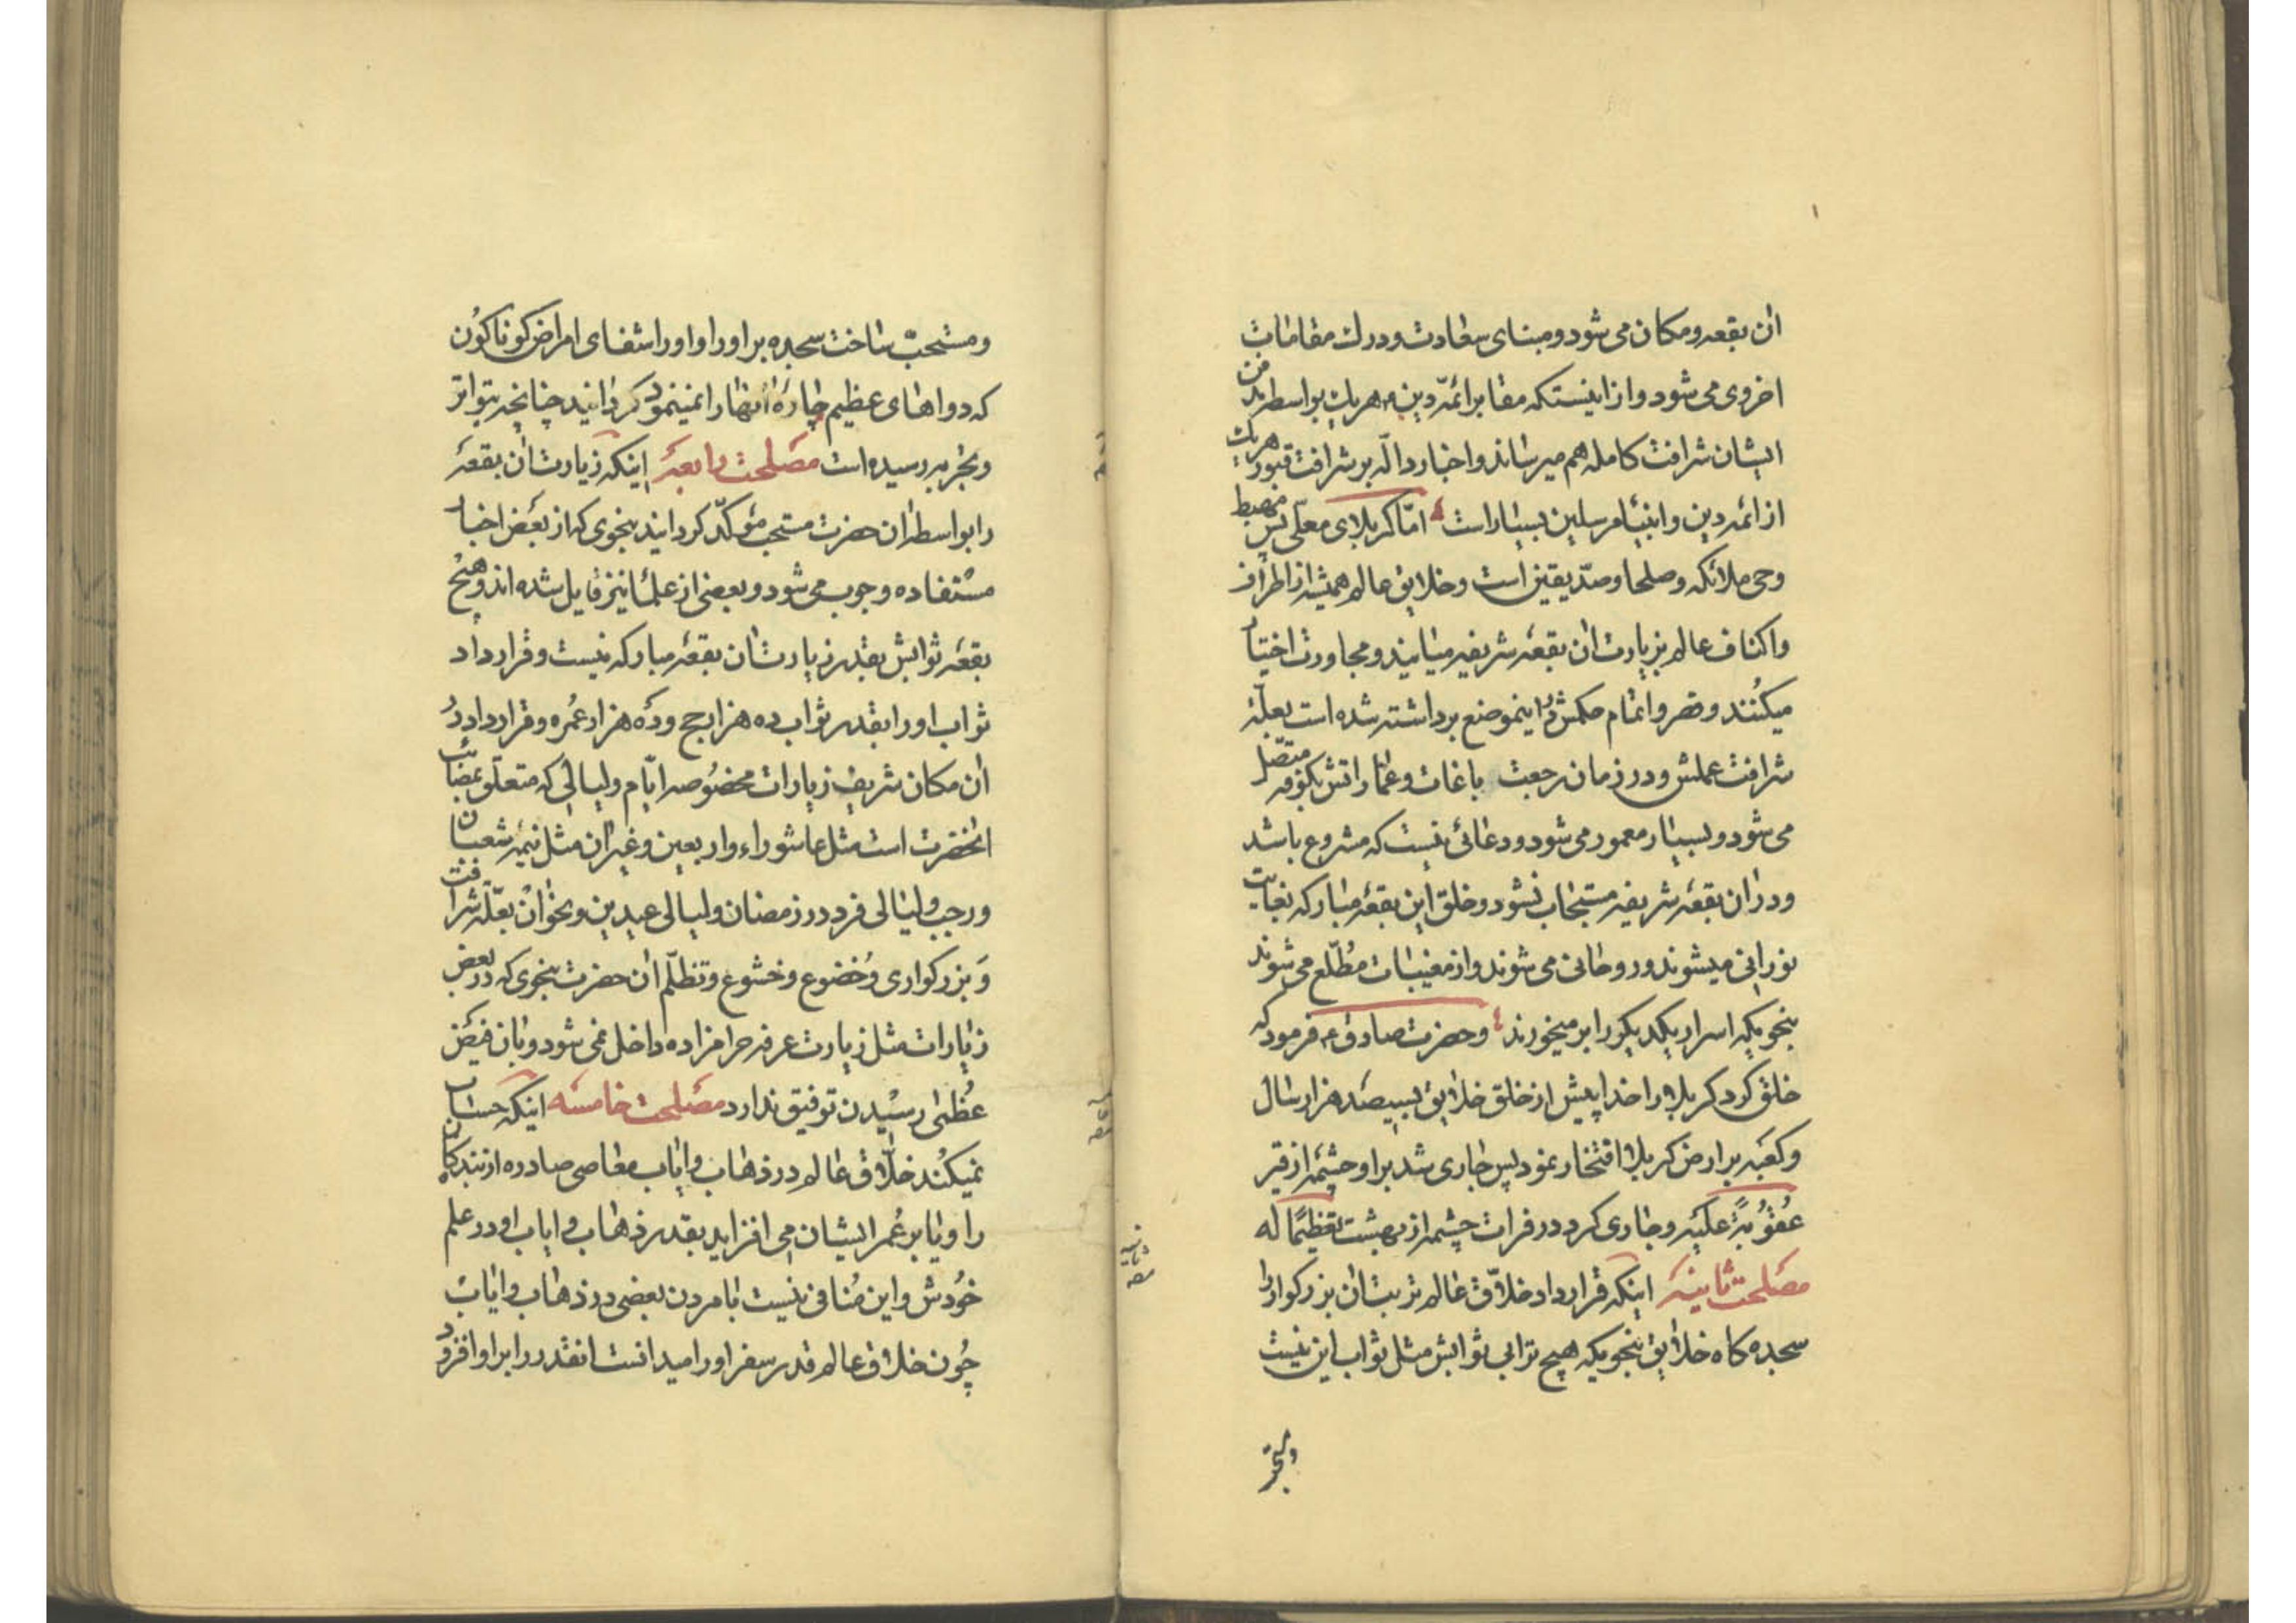 ان بقعه و مکان می شود و مبنای سعادت و درك مقامات
اخروی می شود و از اینستکه مقابر ائمّه دین ع هریك بواسطه بدن
ایشان شرافت کامله بهم میرساند و اخبار دالّه بر شرافت قبور هریك
از ائمه دین و انبیا مرسلین بسیار است امّا کربلای معلّی پس مهبط
وحی ملائکه و صلحا و صدّیقین است و خلایق عالم همیشه از اطراف
و اکناف عالم بزیارت ان بقعهٔ شریفه میایند و مجاورت اختیار
میکنند و قصر و اتمام حکمش در اینموضع برداشته شده است بعلّة
شرافت عملش و در زمان رجعت باغات و عماراتش بکوفه متصّل
می شود و بسیار معمور می شود و دعائی نیست که مشروع باشد
و در ان بقعهٔ شریفه مستجاب نشود و خلق این بقعهٔ مبارکه بغایت
نورانی میشوند و روحانی می شوند و از مغیبات مطّلع می شوند
بنحویکه اسرار یکدیکر را بر میخورند و حضرت صادق ع فرمود که
خلق کرد کربلا را خدا پیش از خلق خلایق ببیصد هزار سال
و کعبه بر ارض کربلا افتخار نمود پس جاری شد بر او چشمه از قیر
عقوبةً علیه و جاری کرد در فرات چشمه از بهشت تعظیمًا له
مصلحت ثانیه اینکه قرار داد خلاّق عالم تربت ان بزرکوار را
سجده کاه خلایق بنحویکه هیچ ترابی ثوابش مثل ثواب این نیست
و مستحبّ ساخت سجده بر او را و او را شفای امراض کوناکون
که دواهای عظیم چارهٔ انها را نمینمود کردانید چنانچه بتواتر
و تجربه رسیده است مصلحت رابعه اینکه زیارت ان بقعهٔ
را بواسطه ان حضرت مستحب مؤکّد کردانید بنحوی که از بعض اخبار
مستفاده وجوب می شود و بعضی از علما نیز قایل شده اند و هیچ
بقعه ثوابش بقدر زیارت ان بقعهٔ مبارکه نیست و قرار داد
ثواب او را بقدر ثواب ده هزار حج و ده هزار عُمره و قرار داد در
ان مکان شریف زیارات مخصوصه ایّام و لیالی که متعلّق بمصائب
انحضرت است مثل عاشوراء و اربعین و غیر ان مثل نیمهٔ شعبان
و رجب و لیالی فرد در رمضان و لیالی عیدین و نحو ان بعلّة شرافت
و بزرکواری و خضوع و خشوع و تظلّم ان حضرت بنحوی که در بعض
زیارات مثل زیارت عرفه حرامزاده داخل نمی شود و بان فیض
عُظمی رسیدن توفیق ندارد مصلحت خامسه اینکه حساب
نمیکند خلاّق عالم در ذهاب و ایاب معاصی صادره از بندکان
را و یا بر عُمر ایشان می افزاید بقدر ذهاب و ایاب او در علم
خودش و این مُنافی نیست با مردن بعضی در ذهاب و ایاب
چون خلاق عالم قدر سفر او را میدانست انقدر را بر او افزود